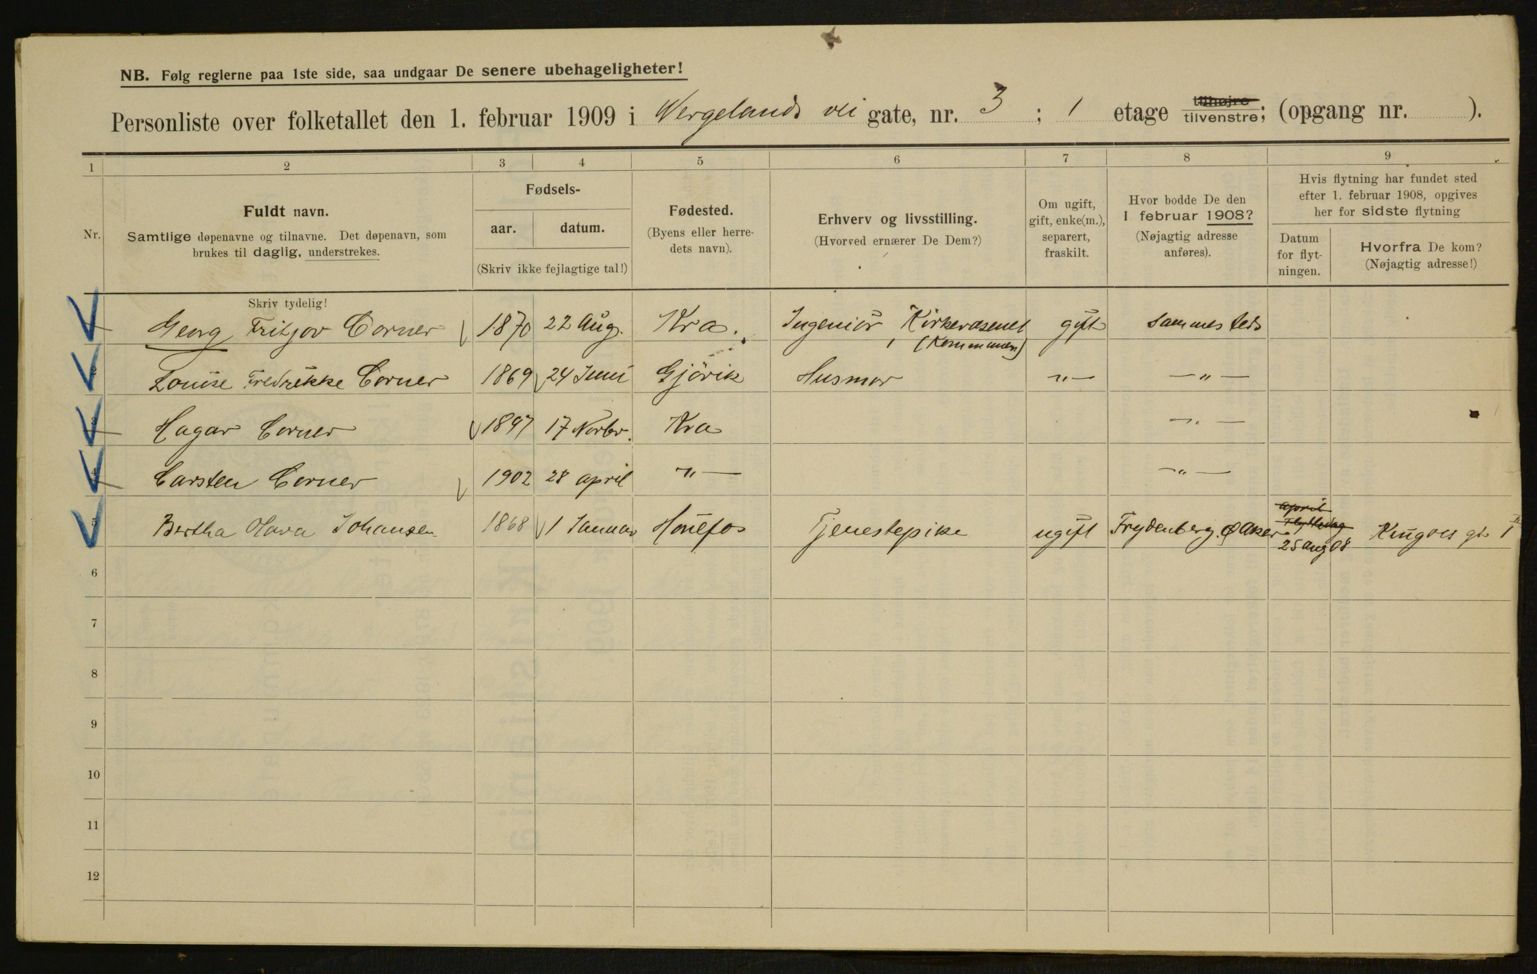 NB. Følg reglerne paa 1ste side, saa undgaar De senere ubehageligheter!
Personliste over folketallet den 1. februar 1909 i Wergelands vei gate, nr. 3 ; 1 etage tilhøjre tilvenstre; (opgang nr. ).
1 2 3 4 5 6 7 8 9
Nr.
Fuldt navn.
Samtlige døpenavne og tilnavne. Det døpenavn, som
brukes til daglig, understrekes.
Fødsels-
aar. datum.
(Skriv ikke fejlagtige tal!)
Fødested.
(Byens eller herre-
dets navn).
Erhverv og livsstilling.
(Hvorved ernærer De Dem?)
Om ugift,
gift, enke(m.),
separert,
fraskilt.
Hvor bodde De den
1 februar 1908?
(Nøjagtig adresse
anføres).
Hvis flytning har fundet sted
efter 1. februar 1908, opgives
her for sidste flytning
Datum
for flyt-
ningen.
Hvorfra De kom?
(Nøjagtig adresse!)
Skriv tydelig!
Georg Fritjov Corner 1870 22 Aug. Kra. Ingeniör, Kirkevæsenet gift sammesteds
(Kommunen)
Louise Fredrikke Corner 1869 24 Juni Gjövik Husmor —"— —"—
Hagar Corner 1897 17 Novbr. Kra —"—
Carsten Corner 1902 28 april —"— —"—
5 Bertha Olava Johansen 1868 1 Januar Hönefos Tjenestepike ugift Frydenberg Ø Aker april Flyttedag 25 Aug 08
6
7
8
9
10
11
12